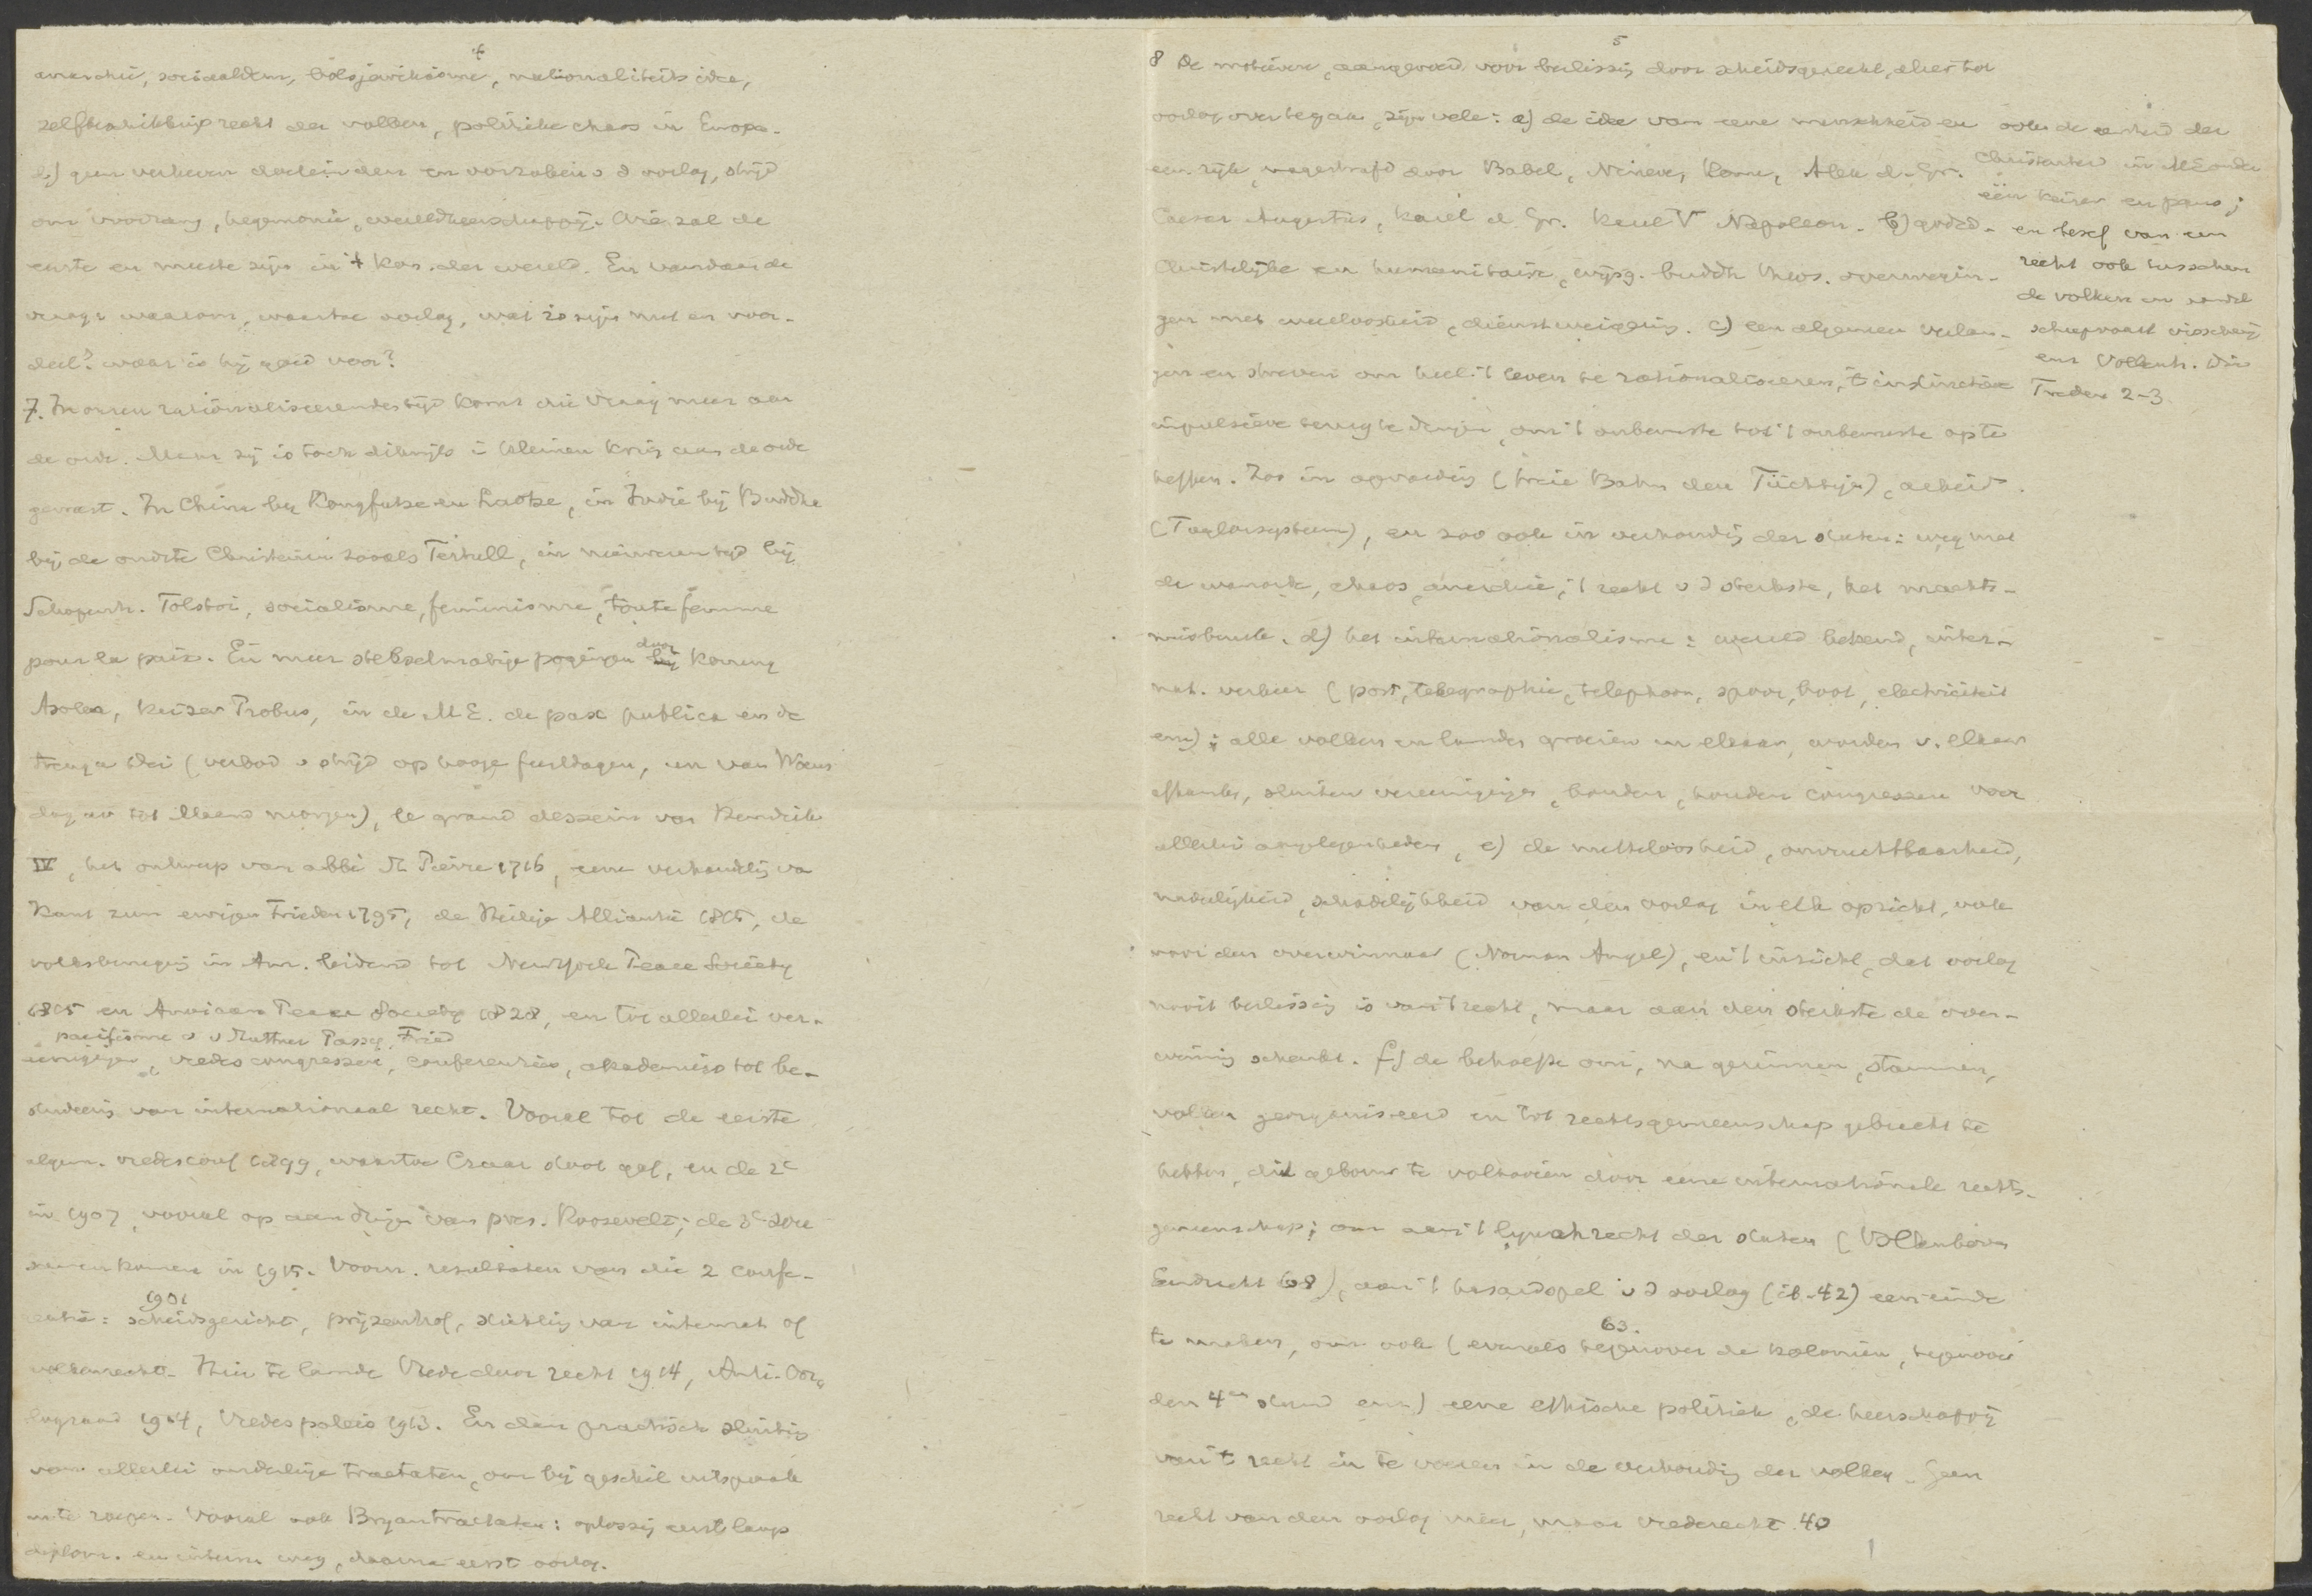 4
anarchie, sociaaldem, bolsjewikisme, nationaliteits idee,
zelfbeschikkingsrecht der volken, politieke chaos in Europa.
b) geen verheven doeleinden en oorzaken v d oorlog, strijd
om voorrang, hegemonie, wereldheerschappij. Wie zal de
eerste en meeste zijn in 't Kon. der wereld. En vandaar de
vraag waarom, waartoe oorlog, wat is zijn nut en voor-
deel? waar is hij goed voor?
7. In onzen rationaliseerenden tijd komt die vraag meer aan
de orde. Maar zij is toch dikwijls in kleinen kring aan de orde
geweest. In China bij Kongfutse en Laotse, in Indië bij Buddha
bij de oudste Christenen zooals Tertull, in nieuweren tijd bij
Schopenh. Tolstoi, socialisme, feminisme, toute femme
pour la paix. En meer stelselmatige pogingen door Koning
Asoka, keizer Probus, in de M E. de pax publica en de
treuga Dei (verbod v strijd op hooge feestdagen, en van Woens
dag av tot Maand morgen), le grand dessein van Hendrik
IV, het ontwerp van abbé St Pierre 1716, eene verhandeling va
Kant zum ewigen Frieden 1795, de Heilige Alliantie 1815, de
volksbeweging in Am. leidend tot New York Peace Society
1815 en American Peace Society 1828, en tot allerlei ver-
pacifisme v v Suttner Passy, Fried
eenigingen, vredescongressen, conferenties, akademies tot be-
studeering van internationaal recht. Vooral tot de eerste
algem. vredesconf 1899, waartoe Czaar stoot gaf, en de 2e
in 1907, vooral op aandringen van pres. Roosevelt; de 3e zou
samenkomen in 1915. Voorn. resultaten van die 2 confe-
1901
rentie: scheidsgerecht, prijzenhof, stichting van internat of
volkenrecht. Hier te lande Vrede door recht 1914, Anti-Oor
logsraad 1914, Vredespaleis 1913. En dan practisch sluiting
van allerlei onderlinge tractaten, om bij geschil uitspraak
in te roepen. Vooral ook Bryantractaten: oplossing eerst langs
diplom. en intern. weg, daarna eerst oorlog.
5
8 De motieven, aangevoerd voor beslissing door scheidsgerecht, eer tot
oorlog over te gaan, zijn vele: a) de idee van eene menschheid en
een rijk, nagestreefd door Babel, Nineve, Rome, Alex d. Gr.
Caesar Augustus, Karel d Gr. Karel V Napoleon. b) godsd.
Christelijke en humanitaire, wijsg. buddh theos. overwegin-
gen met weerloosheid, dienstweigering. c) een algemeen verlan-
gen en streven om heel 't leven te rationaliseeren, 't instinctieve
impulsieve terug te dringen, om 't onbewuste tot 't bewuste op te
heffen. Zoo in opvoeding (freie Bahn den Tüchtigen), arbeid
(Taylorsysteem), en zoo ook in verhouding der staten: weg met
de wanorde, chaos, anarchie; 't recht v d sterkste, het machts-
misbruik. d) het internationalisme: wereld bekend, inter-
nat. verkeer (post, telegraphie, telephoon, spoor, boot, electriciteit
enz); alle volken en landen groeien in elkaar, worden v. elkaar
afhankel., sluiten vereenigingen, bonden, houden congressen voor
allerlei aangelegenheden, e) de nutteloosheid, onvruchtbaarheid,
nadeeligheid, schadelijkheid van den oorlog in elk opzicht, ook
voor den overwinnaar (Norman Angel), en 't inzicht, dat oorlog
nooit beslissing is van 't recht, maar aan den sterkste de over-
winning schenkt. f) de behoefte om, na gezinnen, stammen,
volken georganiseerd en tot rechtsgemeenschap gebracht te
hebben, dit gebouw te voltooien door eene internationale rechts-
gemeenschap; om aan 't lynchrecht der staten (Vollenhoven
Eendracht 68), aan 't hazardspel v d oorlog (ib. 42) een einde
63.
te maken, om ook (evenals tegenover de koloniën, tegenover
den 4en stand enz) eene ethische politiek, de heerschappij
van 't recht in te voeren in de verhouding der volken. Geen
recht van den oorlog meer, maar vrederecht. 40
ook de eenheid der
Christenheid in ME onder
één keizer en paus;
en besef van een
recht ook tusschen
de volken in handel
scheepvaart visscherij
enz Vollenh. Drie
Treden 2-3